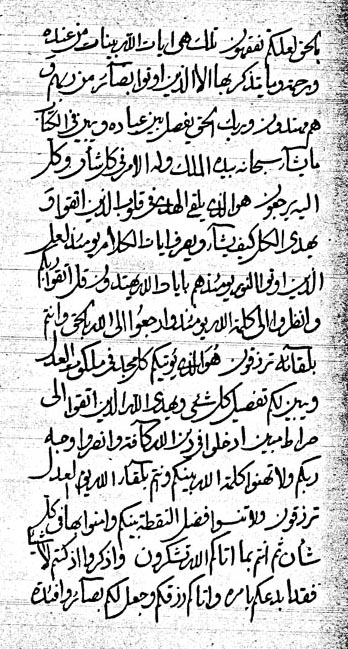 بالحق لعلكم تفقهون تلك هی ايات الله بينات من عنده
ورحمة وما يتذكر بها الا الذين اوتوا بصائر من ربهم و
هم مهتدون وربك الحق يفصل بين عباده ويبين فی الكتاب
ما يشآء سبحانه بيده الملك وله الامر فی كل شأن وكل
اليه يرجعون هو الذی يلقی الهدی فی قلوب الذين اتقوا و
يهدی الكل كيف يشآء ويعرف ايات الكلام يومئذ لعل
الذين اوتوا النور يومئذ هم بايات الله يهتدون قل اتقوا ربكم
وانظروا الی كلمة الله يومئذ وارجعوا الی الله بالحق وانتم
بلقآئه ترزقون هو الذی يؤتيكم كل مجد فی ملكوت العدل
ويبين لكم تفصيل كل شیء ويهدی الله الذين اتقوا الی
صراط مبين ادخلوا فی دين الله كآفة وانصروا وجه
ربكم ولا تهنوا كلمة الله بينكم وانتم بلقآء الله يوم العدل
ترزقون ولا تنسوا فضل النقطة بينكم وامنوا بها فی كل
شأن ثم انتم بما اتاكم الله تشكرون واذكروا اذ كنتم لا شيئا
فقد ابدعكم بامره واتاكم رزقكم وجعل لكم بصآئر وافئدة